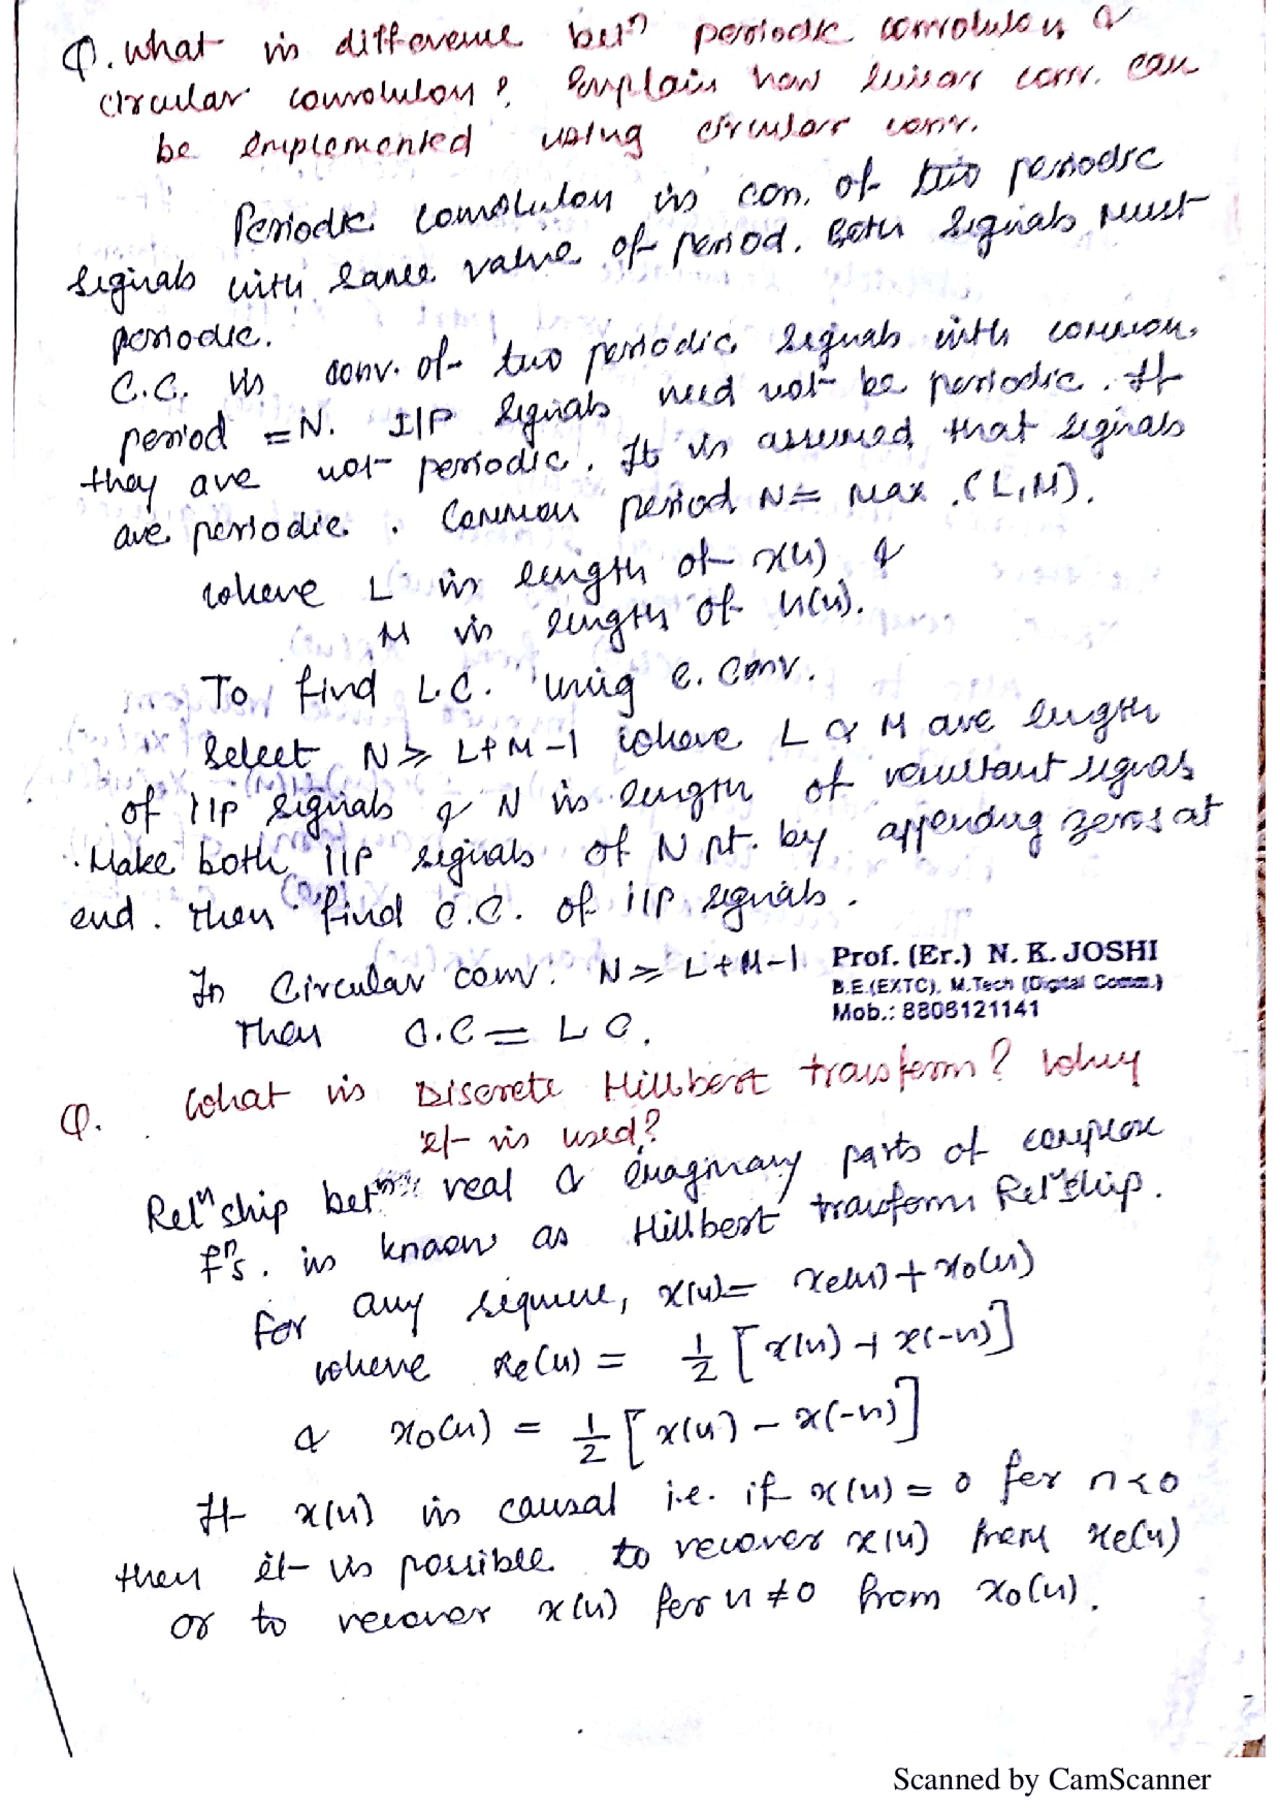 Q. What is difference betn periodic convolution &
circular convolution? Explain how linear conv. can
be implemented using circular conv.
Periodic convolution is con. of two periodic
signals with same value of period. Both signals must
periodic.
C.C. is conv. of two periodic signals with common
period = N. I/P signals need not be periodic. If
they are not periodic. It is assumed that signals
are periodic. Common period N = max. (L, M).
where L is length of x(n) &
M is length of h(n).
To find L.C. using C. Conv.
Select N ≥ L+M-1 where L & M are length
of I/P signals & N is length of resultant signal
Make both I/P signals of N pt. by appending zeros at
end. Then find C.C. of i/p signals.
In Circular conv. N ≥ L+M-1
Then C.C = L C.
Prof. (Er.) N. K. JOSHI
B.E.(EXTC), M.Tech (Digital Comm.)
Mob.: 8806121141
Q. What is Discrete Hillbert transform? Why
it is used?
Reln ship betn real & imaginary parts of complex
fns. is known as Hillbert transform Reln ship.
For any sequence, x(n) = xe(n) + xo(n)
where xe(n) = 1/2 [x(n) + x(-n)]
& xo(n) = 1/2 [x(n) - x(-n)]
If x(n) is causal i.e. if x(n) = 0 for n<0
then it is possible to recover x(n) from xe(n)
or to recover x(n) for n ≠ 0 from xo(n).
Scanned by CamScanner